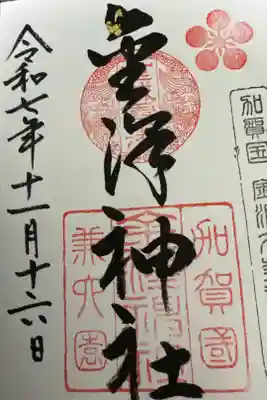 加賀国
金澤神社
加賀國
金澤神社
兼六園
令和七年十一月十六日